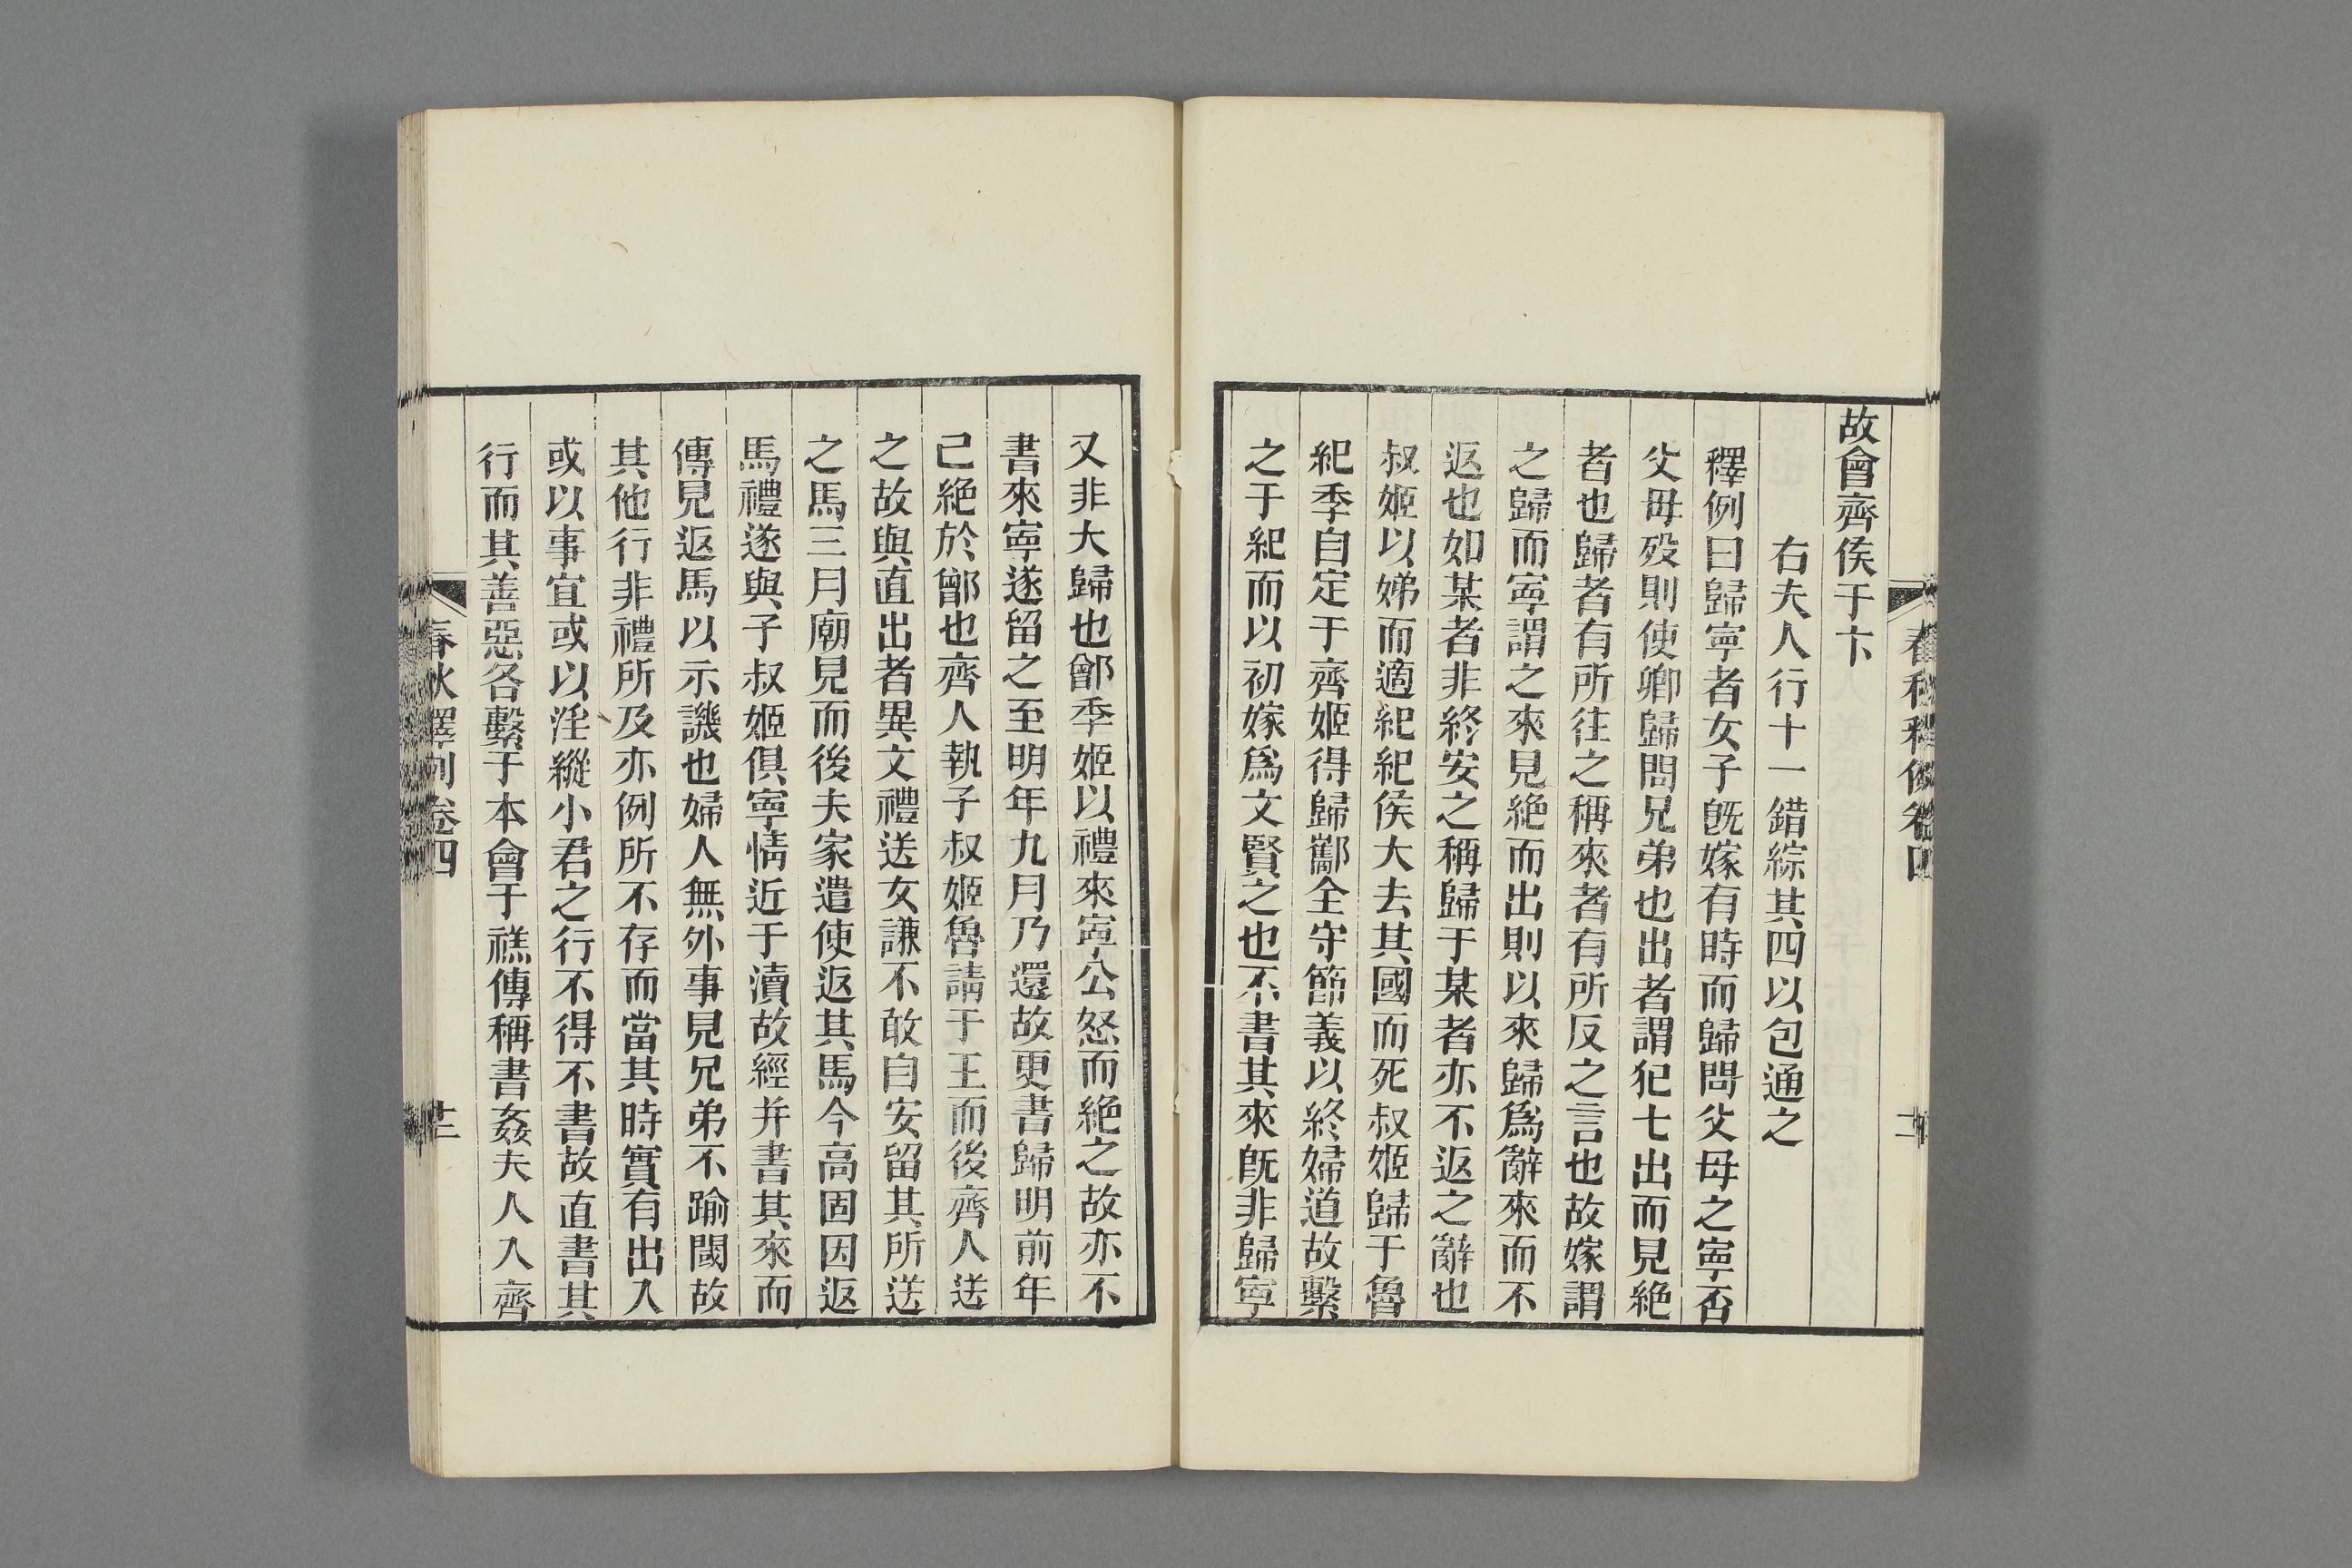 故會齊侯于卞
右夫人行十一錯綜其四以包通之
釋例曰歸寧者女子旣嫁有時而歸問父母之寧否
父母歿則使卿歸問兄弟也出者謂犯七出而見絶
者也歸者有所往之稱來者有所反之言也故嫁謂
之歸而寧謂之來見絶而出則以來歸爲辭來而不
返也如某者非終安之稱歸于某者亦不返之辭也
叔姬以娣而適紀紀侯大去其國而死叔姬歸于魯
紀季自定于齊姬得歸酅全守節義以終婦道故繫
之于紀而以初嫁爲文賢之也不書其來旣非歸寧
又非大歸也鄫季姬以禮來寧公怒而絶之故亦不
書來寧遂留之至明年九月乃還故更書歸明前年
已絶於鄫也齊人執子叔姬魯請于王而後齊人送
之故與直出者異文禮送女謙不敢自安留其所送
之馬三月廟見而後夫家遣使返其馬今高固因返
馬禮遂與子叔姬俱寧情近于瀆故經并書其來而
傳見返馬以示譏也婦人無外事見兄弟不踰閾故
其他行非禮所及亦例所不存而當其時實有出入
或以事宜或以淫縱小君之行不得不書故直書其
行而其善惡各繫于本會于禚傳稱書姦夫人入齊
春秋釋例卷四